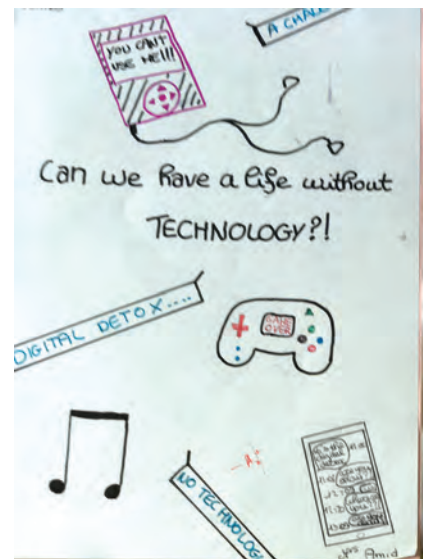 A CHALL
YOU CAN'T
USE ME!!!
Can we have a life without
TECHNOLOGY?!
DIGITAL DETOX....
GAME
OVER
NO TECHNOLOGY
Amid